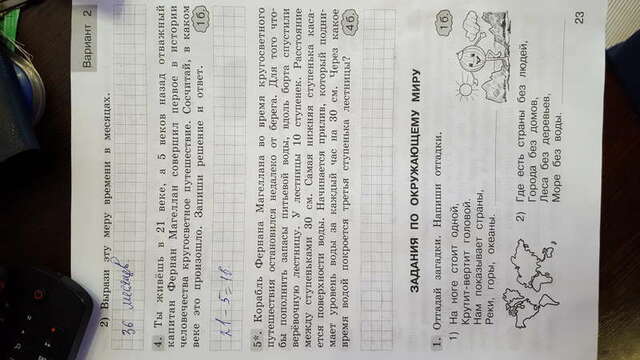 Вариант 2
2) Вырази эту меру времени в месяцах.
36 месяцев
4. Ты живёшь в 21 веке, а 5 веков назад отважный
капитан Фернан Магеллан совершил первое в истории
человечества кругосветное путешествие. Сосчитай, в каком
веке это произошло. Запиши решение и ответ.
1б
21-5=16
5*. Корабль Фернана Магеллана во время кругосветного
путешествия остановился недалеко от берега. Для того что-
бы пополнить запасы питьевой воды, вдоль борта спустили
верёвочную лестницу. У лестницы 10 ступенек. Расстояние
между ступеньками 30 см. Самая нижняя ступенька каса-
ется поверхности воды. Начинается прилив, который подни-
мает уровень воды за каждый час на 30 см. Через какое
время водой покроется третья ступенька лестницы?
4б
ЗАДАНИЯ ПО ОКРУЖАЮЩЕМУ МИРУ
1. Отгадай загадки. Напиши отгадки.
1б
1) На ноге стоит одной,
Крутит-вертит головой.
Нам показывает страны,
Реки, горы, океаны.
2) Где есть страны без людей,
Города без домов,
Леса без деревьев,
Море без воды.
23